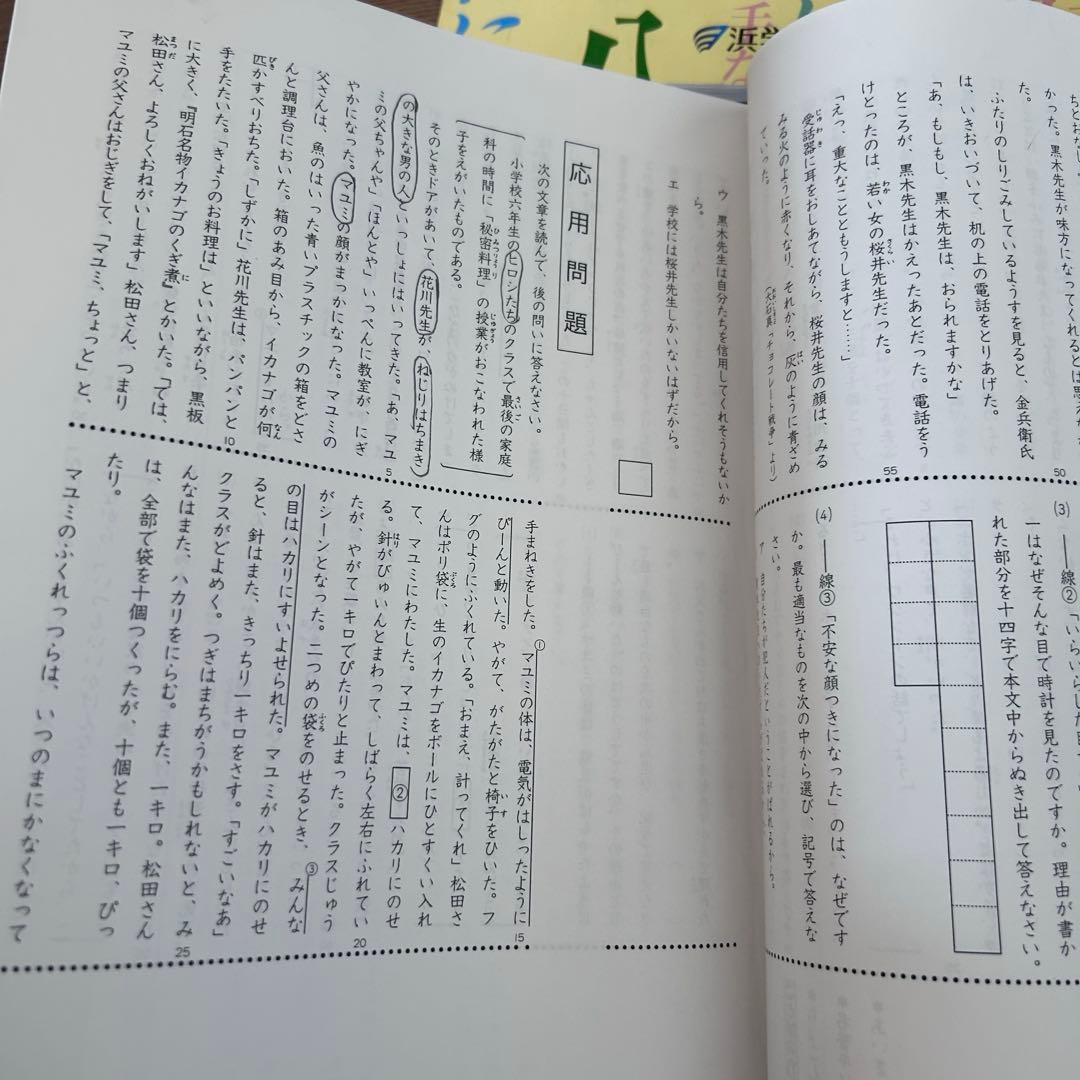 浜学
かった。黒木先生が味方になってくれるとは思
た。
ふたりのしりごみしているようすを見ると、金兵衛氏
は、いきおいづいて、机の上の電話をとりあげた。
「あ、もしもし、黒木先生は、おられますかな」
ところが、黒木先生はかえったあとだった。電話をう
けとったのは、若い女の桜井先生だった。
「えっ、重大なことともうしますと……」
受話器に耳をおしあてながら、桜井先生の顔は、みる
みる火のように赤くなり、それから、灰のように青ざめ
ていった。
(大石真「チョコレート戦争」より)
50
55
(3) ――線②「いらいらした
一はなぜそんな目で時計を見たのですか。理由が書か
れた部分を十四字で本文中からぬき出して答えなさい。
(4) ――線③「不安な顔つきになった」のは、なぜです
か。最も適当なものを次の中から選び、記号で答えな
さい。
ア 自分たちが犯人だということがばれるから。
ウ 黒木先生は自分たちを信用してくれそうもないか
ら。
エ 学校には桜井先生しかいないはずだから。
応用問題
次の文章を読んで、後の問いに答えなさい。
小学校六年生のヒロシたちのクラスで最後の家庭
科の時間に「秘密料理」の授業がおこなわれた様
子をえがいたものである。
そのときドアがあいて、花川先生が、ねじりはちまき
の大きな男の人といっしょにはいってきた。「あ、マユ
ミの父ちゃんや」「ほんとや」いっぺんに教室が、にぎ
やかになった。マユミの顔がまっかになった。マユミの
父さんは、魚のはいった青いプラスチックの箱をどさ
んと調理台においた。箱のあみ目から、イカナゴが何
匹かすべりおちた。「しずかに」花川先生は、パンパンと
手をたたいた。「きょうのお料理は」といいながら、黒板
に大きく、『明石名物イカナゴのくぎ煮』とかいた。「では、
松田さん、よろしくおねがいします」松田さん、つまり
マユミの父さんはおじぎをして、「マユミ、ちょっと」と、
5
10
手まねきをした。①マユミの体は、電気がはしったように
びーんと動いた。やがて、がたがたと椅子をひいた。フ
グのようにふくれている。「おまえ、計ってくれ」松田さ
んはポリ袋に生のイカナゴをボールにひとすくい入れ
て、マユミにわたした。マユミは、②ハカリにのせ
る。針がびゅいんとまわって、しばらく左右にふれてい
たが、やがて一キロでぴたりと止まった。クラスじゅう
がシーンとなった。二つめの袋をのせるとき、③みんな
の目はハカリにすいよせられた。マユミがハカリにのせ
ると、針はまた、きっちり一キロをさす。「すごいなあ」
クラスがどよめく。つぎはまちがうかもしれないと、み
んなはまた、ハカリをにらむ。また、一キロ。松田さん
は、全部で袋を十個つくったが、十個とも一キロ、ぴっ
たり。
マユミのふくれっつらは、いつのまにかなくなって
15
20
25